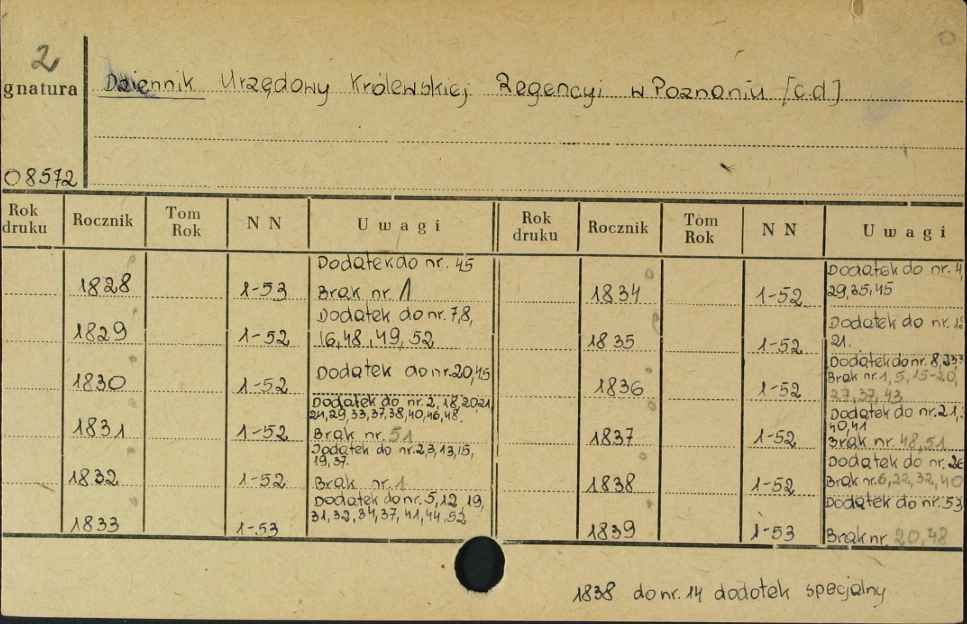 2
gnatura
Dziennik Urzędowy Królewskiej Regencyi w Poznaniu [c.d]
08572
Rok druku Rocznik Tom Rok N N Uwagi
1828 1-53 Dodatek do nr. 45
Brak nr. 1
1829 1-52 Dodatek do nr. 7,8,
16,48,49,52
1830 1-52 Dodatek do nr. 20,45
1831 1-52 Dodatek do nr. 2,18,20,21
24,29,33,37,38,40,46,48.
Brak nr. 51
1832 1-52 Dodatek do nr. 2,3,13,15,
19,37.
Brak nr. 1
1833 1-53 Dodatek do nr. 5,12,19,
31,32,34,37,41,44,52
Rok druku Rocznik Tom Rok N N Uwagi
1834 1-52 Dodatek do nr. 4
29,35,45
1835 1-52 Dodatek do nr.
21.
1836 1-52 Dodatek do nr. 8,
Brak nr. 1, 5, 15-20,
27,37,43
1837 1-52 Dodatek do nr. 21,
40,41
Brak nr. 48,51
1838 1-52 Dodatek do nr.
Brak nr. 6,22,32,40
1839 1-53 Dodatek do nr. 53
Brak nr. 20,48
1838 do nr. 14 dodatek specjalny